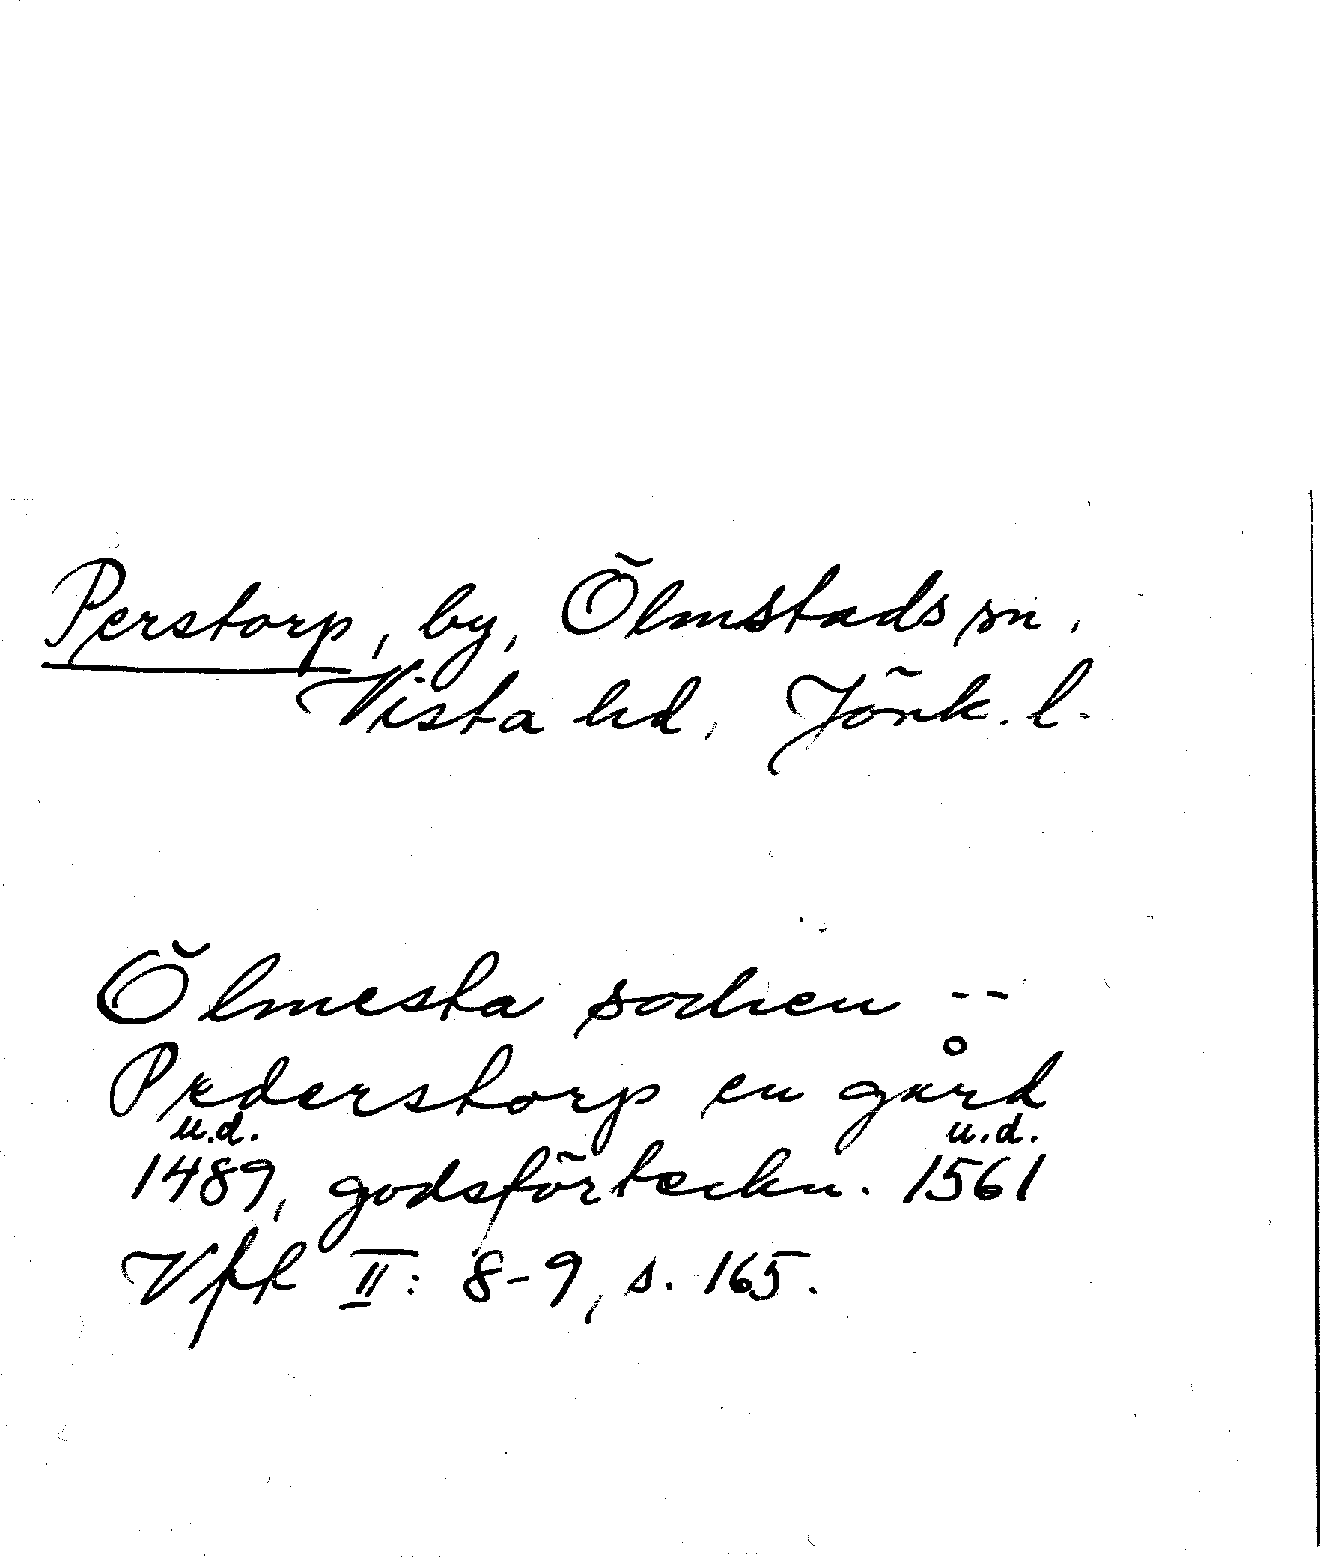 Perstorp, by, Ölmstads sn,
Vista hd, Jönk. l.
Ölmesta sochen --
Pederstorp en gård
u.d. u.d.
1489, godsförteckn. 1561
Vfk II: 8-9, s. 165.